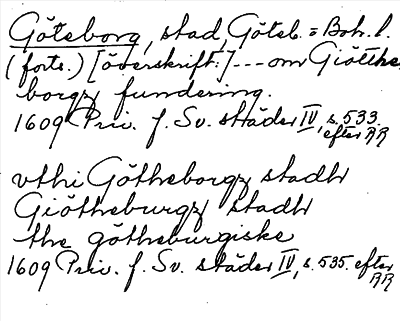 Göteborg, stad, Göteb. o Boh. l.
(forts.) [överskrift:] --- om Giötthe
borgz fundering.
1609 Priv. f. Sv. städer IV, s. 533.
efter RR
vthi Götheborgz stadh
Giötheburgz stadh
the götheburgiske
1609 Priv. f. Sv. städer IV, s. 535. efter
RR